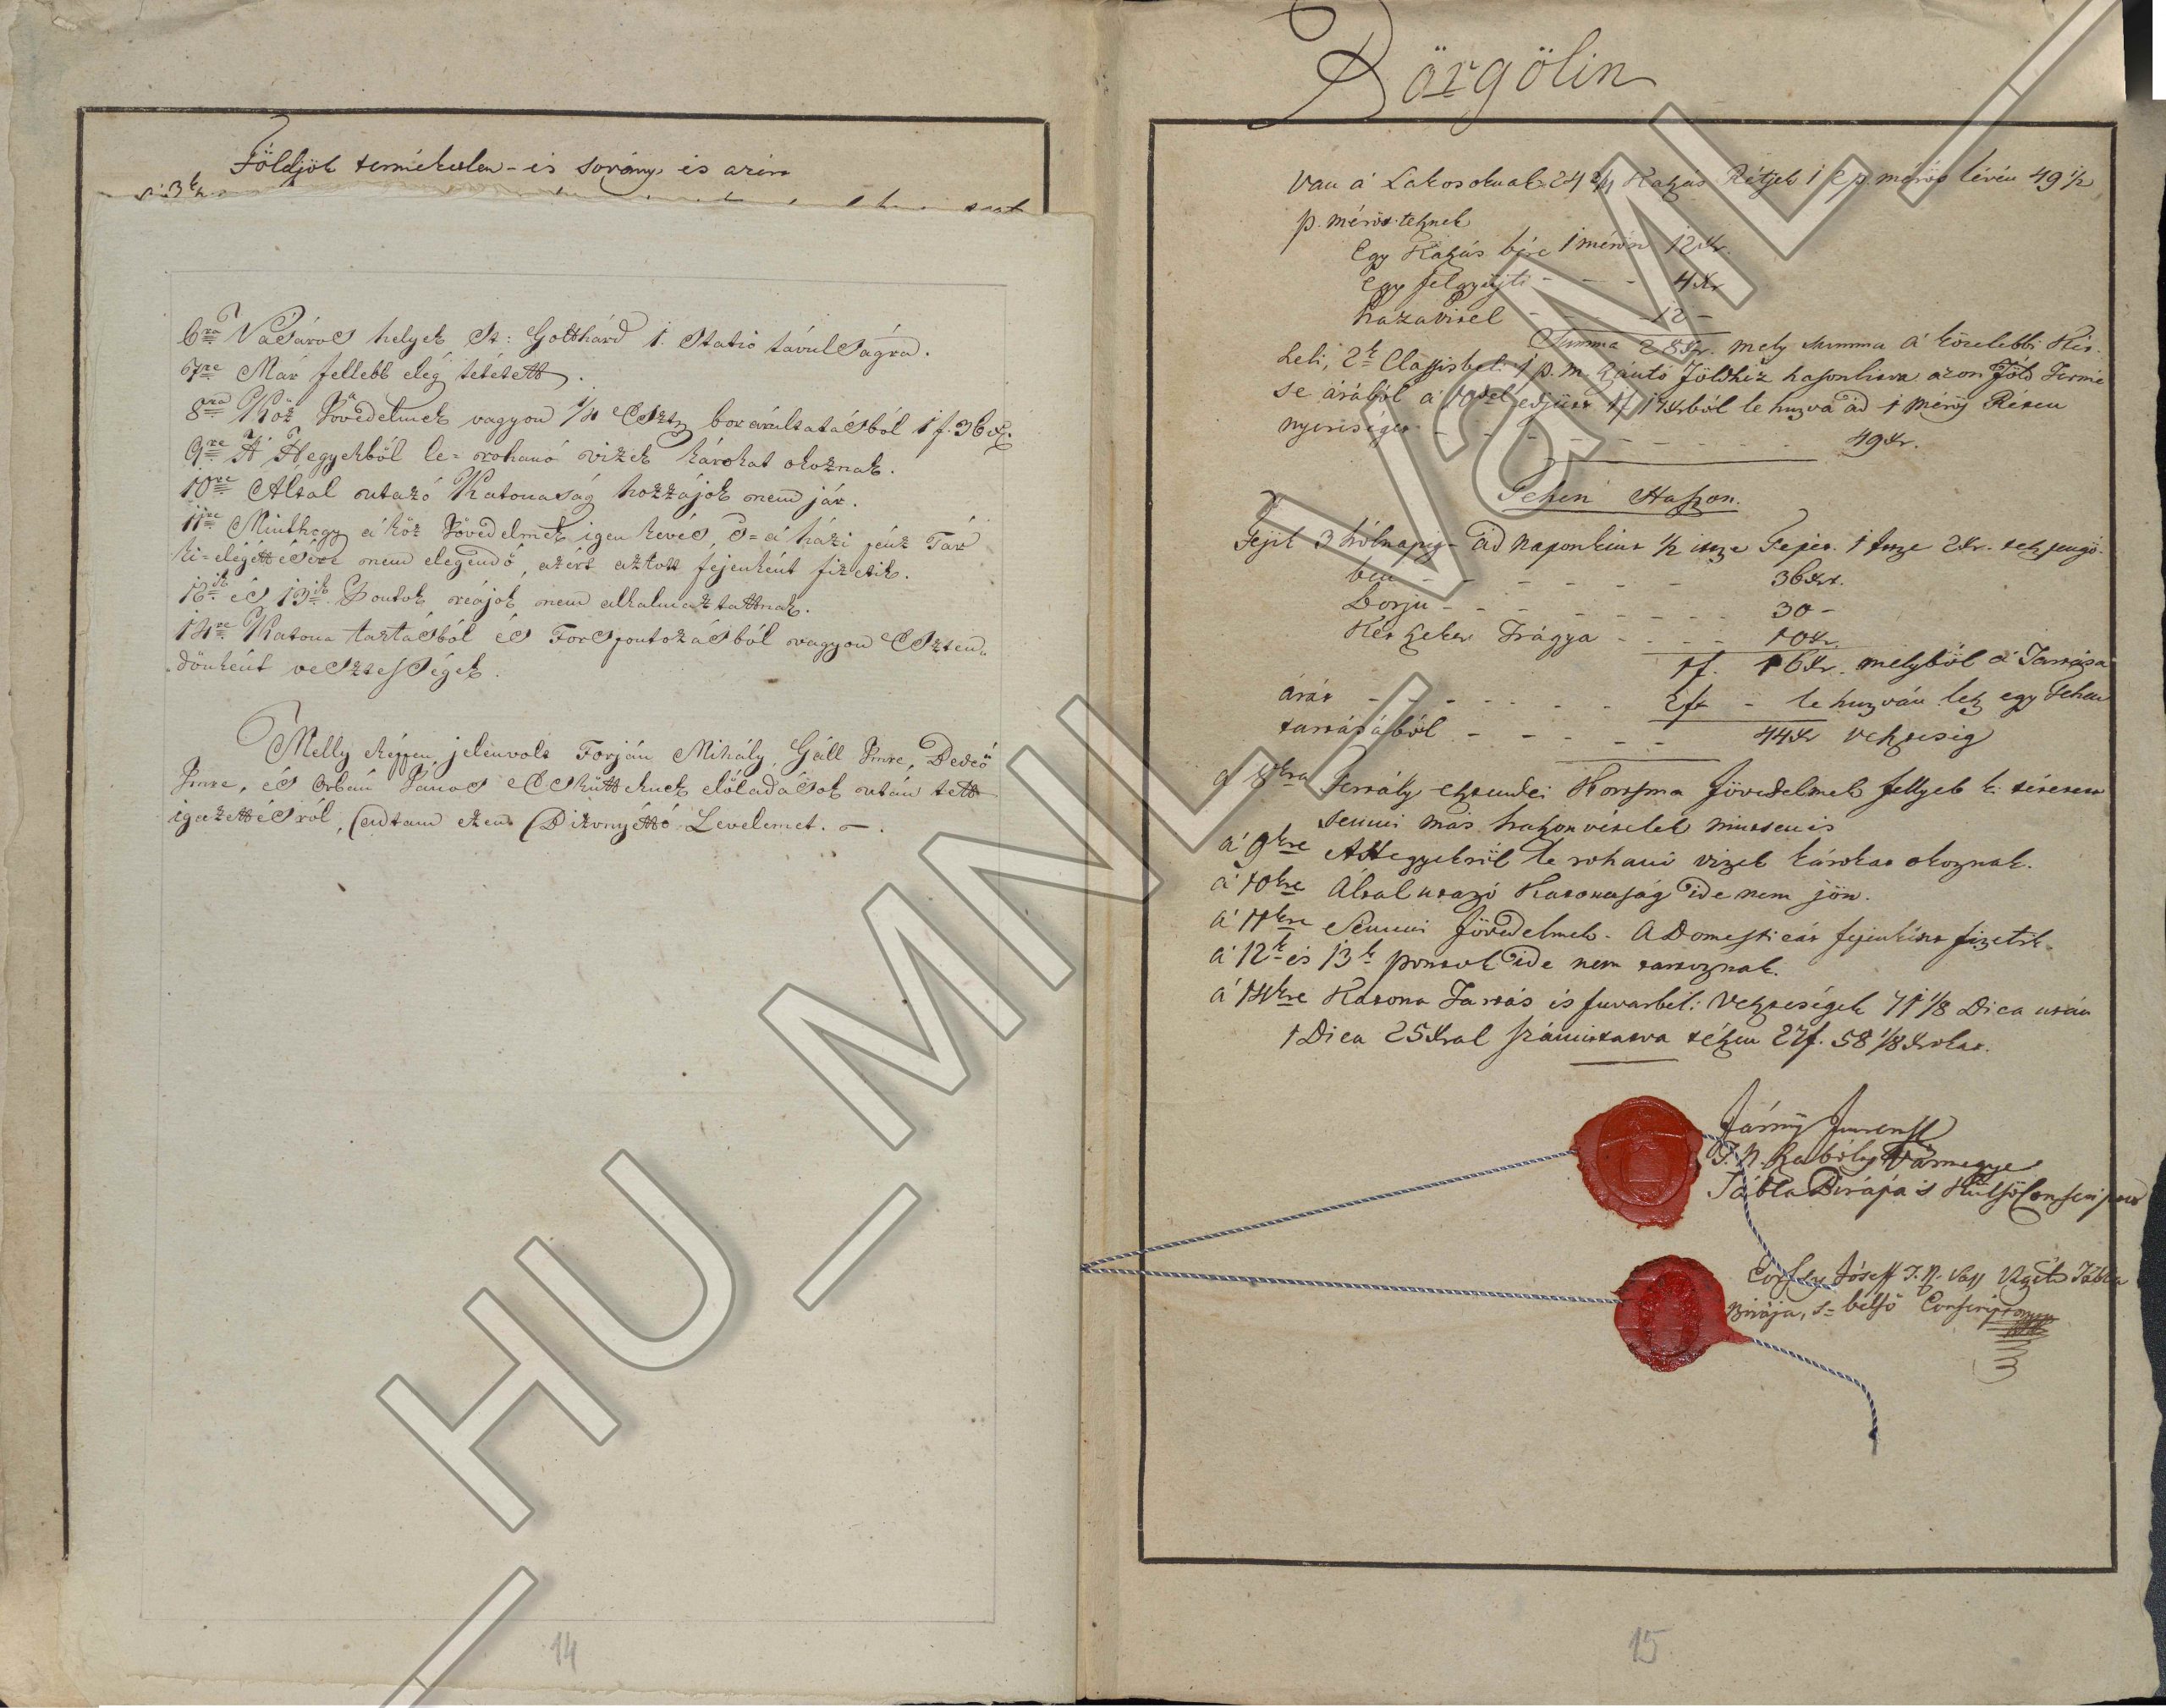 Földjök terméketlen - és sovány és azért
6ra Vásáros helyek St: Gotthárd 1. Statió távulságra.
7re Már fellebb elég tétetett.
8ra Köz Jövedelmek vagyon 1/4 Eszt. bor árultatásból 1 f. 36 x.
9re A Hegyekből le-rohanó vizek károkat okoznak.
10re Által utazó Katonaság hozzájok nem jár.
11re Minthogy a' köz Jövedelmek igen kevés, s=a' házi pénz Tár
ki-elégettésére nem elegendő, azért aztott fejenként fizetik.
12ik és 13ik Pontok reájok nem alkalmaztattnak.
14re Katona tartásból és Forspontozásból vagyon Eszten„
dőnként veszteségek.
Melly képpen jelenvolt Forján Mihály, Gáll Imre, Dedeő
Imre, és Orbán János Eskütteknek előladások után tett
igazettésról, adtam ezen Bizonyéttó Levelemet. —.
14
Börgölin
Van á Lakosoknak 24 2/4 Kaszás Rétjek 1 2 p. mérős lévén 49 1/2
p. mérőt tesznek
Egy Kaszás bére 1 mérőn 12 Xr.
Egy felgyűjtő - - - 4 Xr
hazavitel - - - 12 -
Summa 28 Xr. mely summa á közelebbi Kör
beli, 2k Classisbeli 1 p. m. szántó Földhöz hasonlitva azon Föld Termé
se árából á 1 f 17 Xrból le huzva ád 1 mérős Réten
nyereséget - - - - - - - - - 49 Xr.
Tehén Haszon.
Fejik 3 hólnapig - ád naponkint 1/2 itze Tejet. 1 Itze 2 Xr. tesz pengő-
ben - - - - - - 36 Xr.
Borju - - - - - - - 30 -
Két szeker Trágya - - - - 10 Xr.
1 f. 16 Xr. melyből á Tartása
árát - - - - - - 2 ft - le huzván lesz egy Tehen
tartásából - - - - - 44 Xr veszteség
á 8kra Fertály esztendei Kortsma Jövedelmek fellyeb ki téreten
semmi más haszonvételek nintsen is
á 9kre A Hegyekrül le rohanó vizek károkat okoznak.
á 10kre Által utazó Katonaság ide nem jön.
á 11kre Semmi Jövedelmek. A Domesticát fejenként fizetik.
á 12k és 13k pontok ide nem tartoznak.
á 14kre Katona Tartás és fuvarbéli Veszteségek 71 1/8 Dica után
1 Dica 25 Xral számittatva tészen 27 f. 58 1/8 Xrokat.
T. N. Vármegye
Tábla Birája is Külső Conscriptor
Jósef T. N. Vass Vgye Tábla
Birája, s= belső Conscriptor
15
HU_MNL_VaML_